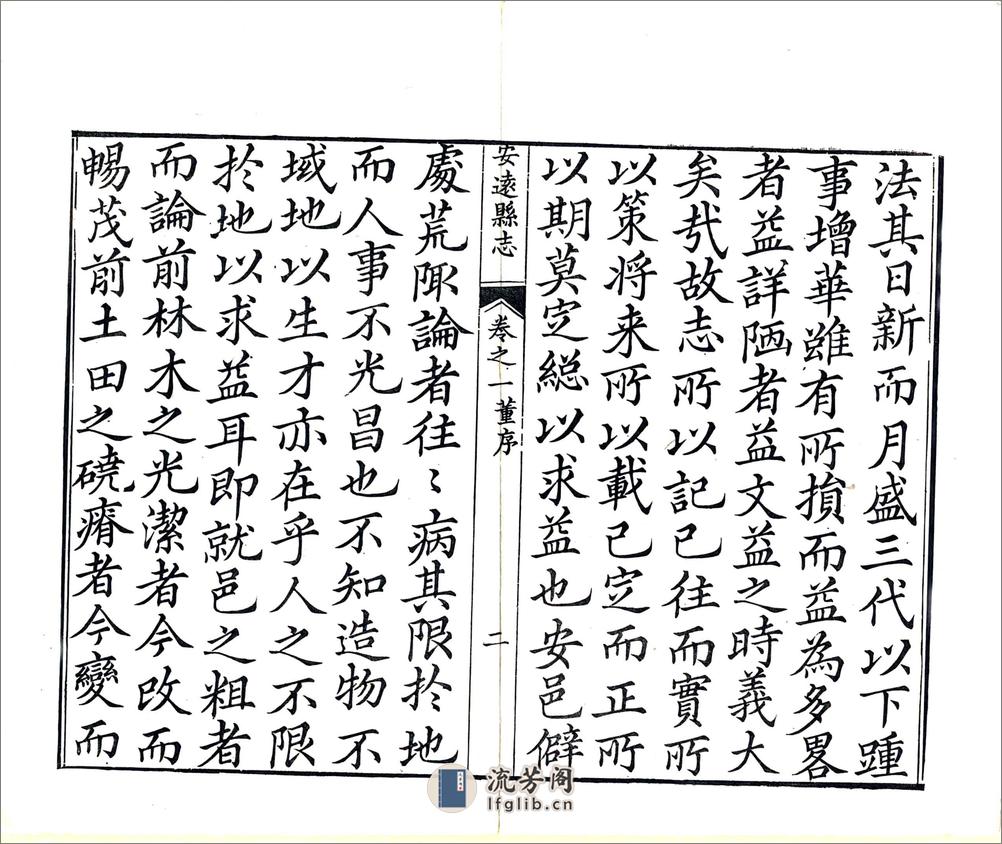 法其日新而月盛三代以下踵
事增華雖有所損而益為多畧
者益詳陋者益文益之時義大
矣㢤故志所以記已往而實所
以策将来所以載已定而正所
以期莫定総以求益也安邑僻
安遠縣志
卷之一董序
二
處荒陬論者往〻病其限扵地
而人事不光昌也不知造物不
域地以生才亦在乎人之不限
扵地以求益耳即就邑之粗者
而論前林木之光潔者今改而
暢茂前土田之磽瘠者今變而
流芳阁
lfglib.cn